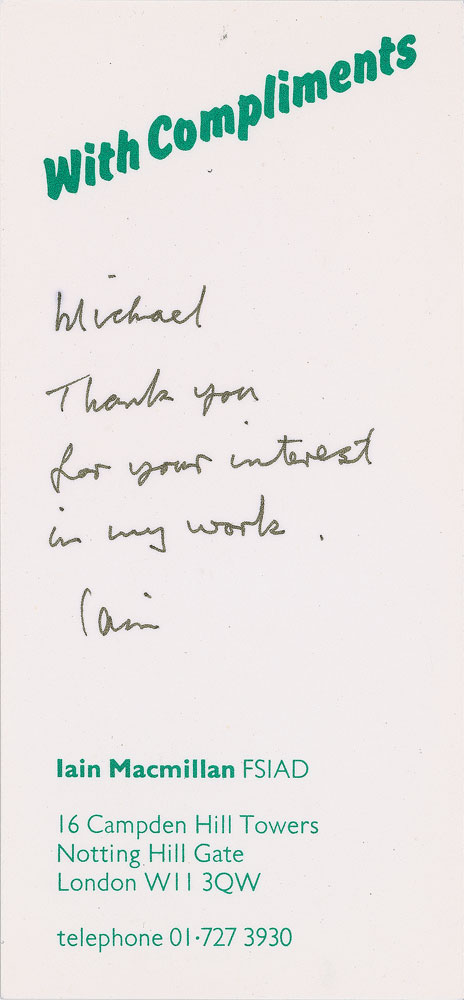 With Compliments
Michael
Thank you
for your interest
in my work.
Iain
Iain Macmillan FSIAD
16 Campden Hill Towers
Notting Hill Gate
London W11 3QW
telephone 01·727 3930